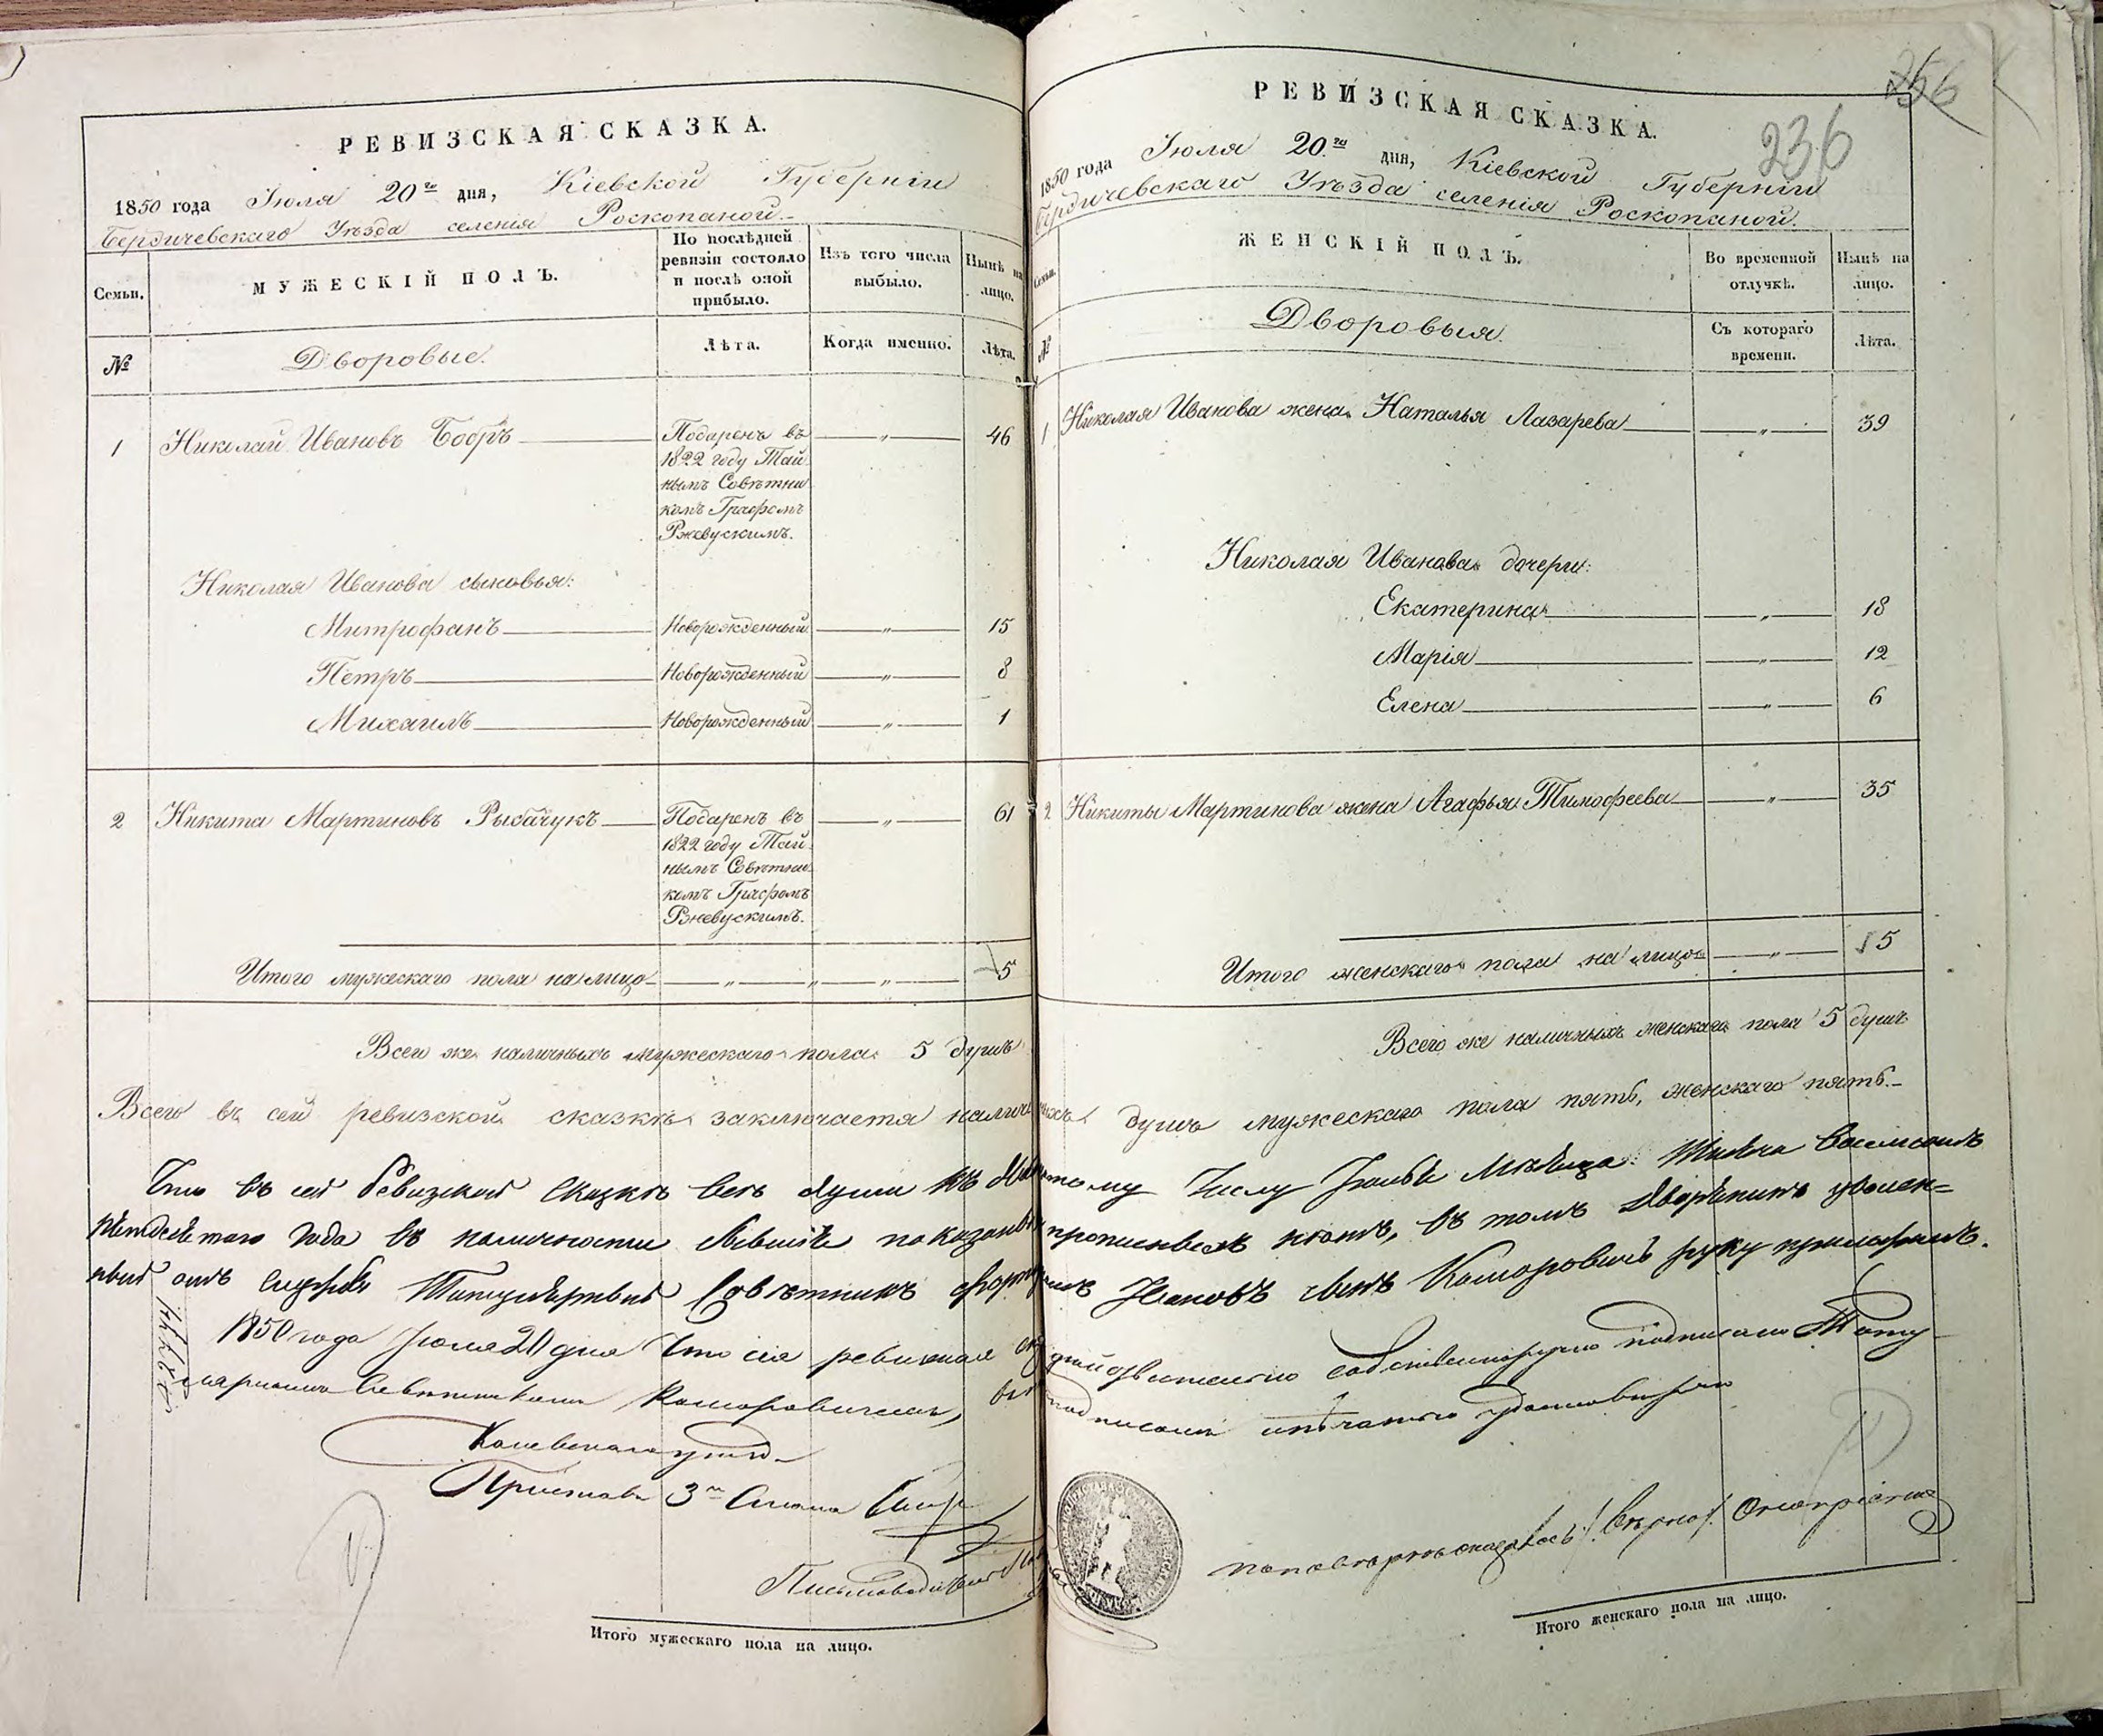 РЕВИЗСКАЯ СКАЗКА.
1850 года Іюля 20го дня, Кіевской Губерніи
Бердичевскаго Уѣзда селенія Роскопаной.
Семьи.
МУЖЕСКІЙ ПОЛЪ.
По послѣдней
ревизіи состояло
и послѣ оной
прибыло.
Изъ того числа
выбыло.
Нынѣ на
лицо.
№
Дворовые.
Лѣта.
Когда именно.
Лѣта.
1 Николай Ивановъ Бобръ Подаренъ въ „ 46
1822 году Тай
нымъ Совѣтни
комъ Графомъ
Ржевускимъ.
Николая Иванова сыновья:
Митрофанъ Новорожденный „ 15
Петръ Новорожденный „ 8
Михаилъ Новорожденный „ 1
2 Никита Мартиновъ Рыбачукъ Подаренъ въ „ 61
1822 году Тай
нымъ Совѣтни
комъ Графомъ
Ржевускимъ.
Итого мужескаго пола на лицо „ „ „ 5
Всего же наличныхъ мужескаго пола 5 душъ
256
236
РЕВИЗСКАЯ СКАЗКА.
1850 года Іюля 20го дня, Кіевской Губерніи
Бердичевскаго Уѣзда селенія Роскопаной.
Семьи.
ЖЕНСКІЙ ПОЛЪ.
Во временной
отлучкѣ.
Нынѣ на
лицо.
№
Дворовыя.
Съ котораго
времени.
Лѣта.
1 Николая Иванова жена Наталья Лазарева „ 39
Николая Иванова дочери:
Екатерина „ 18
Марія „ 12
Елена „ 6
2 Никиты Мартинова жена Агафья Тимофеева „ 35
Итого женскаго пола на лицо „ 5
Всего же наличныхъ женскаго пола 5 душъ
Всего въ сей ревизской сказкѣ заключается наличныхъ душъ мужескаго пола пять, женскаго пять.
Что въ сей Ревизской Сказкѣ всѣ души къ числу Мѣсяца Тысяча Восемсотъ
Пятдесятаго Года въ наличности бывшіе показаны и прописныхъ нѣтъ, въ томъ Дворянинъ уволен=
ный отъ службы Титулярный Совѣтникъ Ивановъ сынъ Коморовичъ руку приложилъ.
1850 года Іюля 20 дня Что сія ревизская собственноручно подписана Титу
лярнымъ Совѣтникомъ Коморовичемъ,
Приставъ 3го Стана
Письмоводитель
Итого мужескаго пола на лицо.
Итого женскаго пола на лицо.